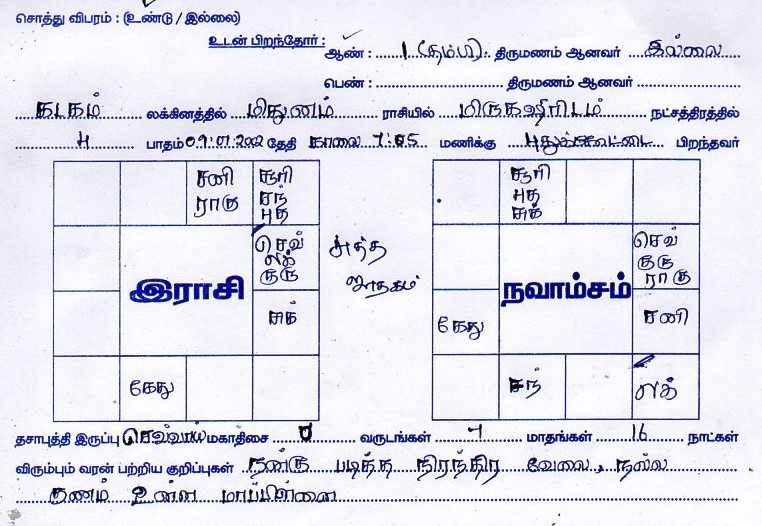 சொத்து விபரம் : (உண்டு / இல்லை)
உடன் பிறந்தோர் : ஆண் : 1 (தம்பி) திருமணம் ஆனவர் இல்லை
பெண் : திருமணம் ஆனவர்
கடகம் லக்கினத்தில் மிதுனம் ராசியில் மிருகஷீரிடம் நட்சத்திரத்தில்
4 பாதம் 09.07.2002 தேதி காலை 7:05 மணிக்கு புதுக்கோட்டை பிறந்தவர்
சனி ராகு
சூரி சந் புத
செவ் லக் குரு
சுக்
கேது
இராசி
சுத்த ஜாதகம்
சூரி புத சுக்
செவ் குரு ராகு
கேது
சனி
சந்
லக்
நவாம்சம்
தசாபுத்தி இருப்பு செவ்வாய் மகாதிசை 0 வருடங்கள் 7 மாதங்கள் 16 நாட்கள்
விரும்பும் வரன் பற்றிய குறிப்புகள் நன்கு படித்த நிரந்திர வேலை, நல்ல
குணம் உள்ள மாப்பிள்ளை